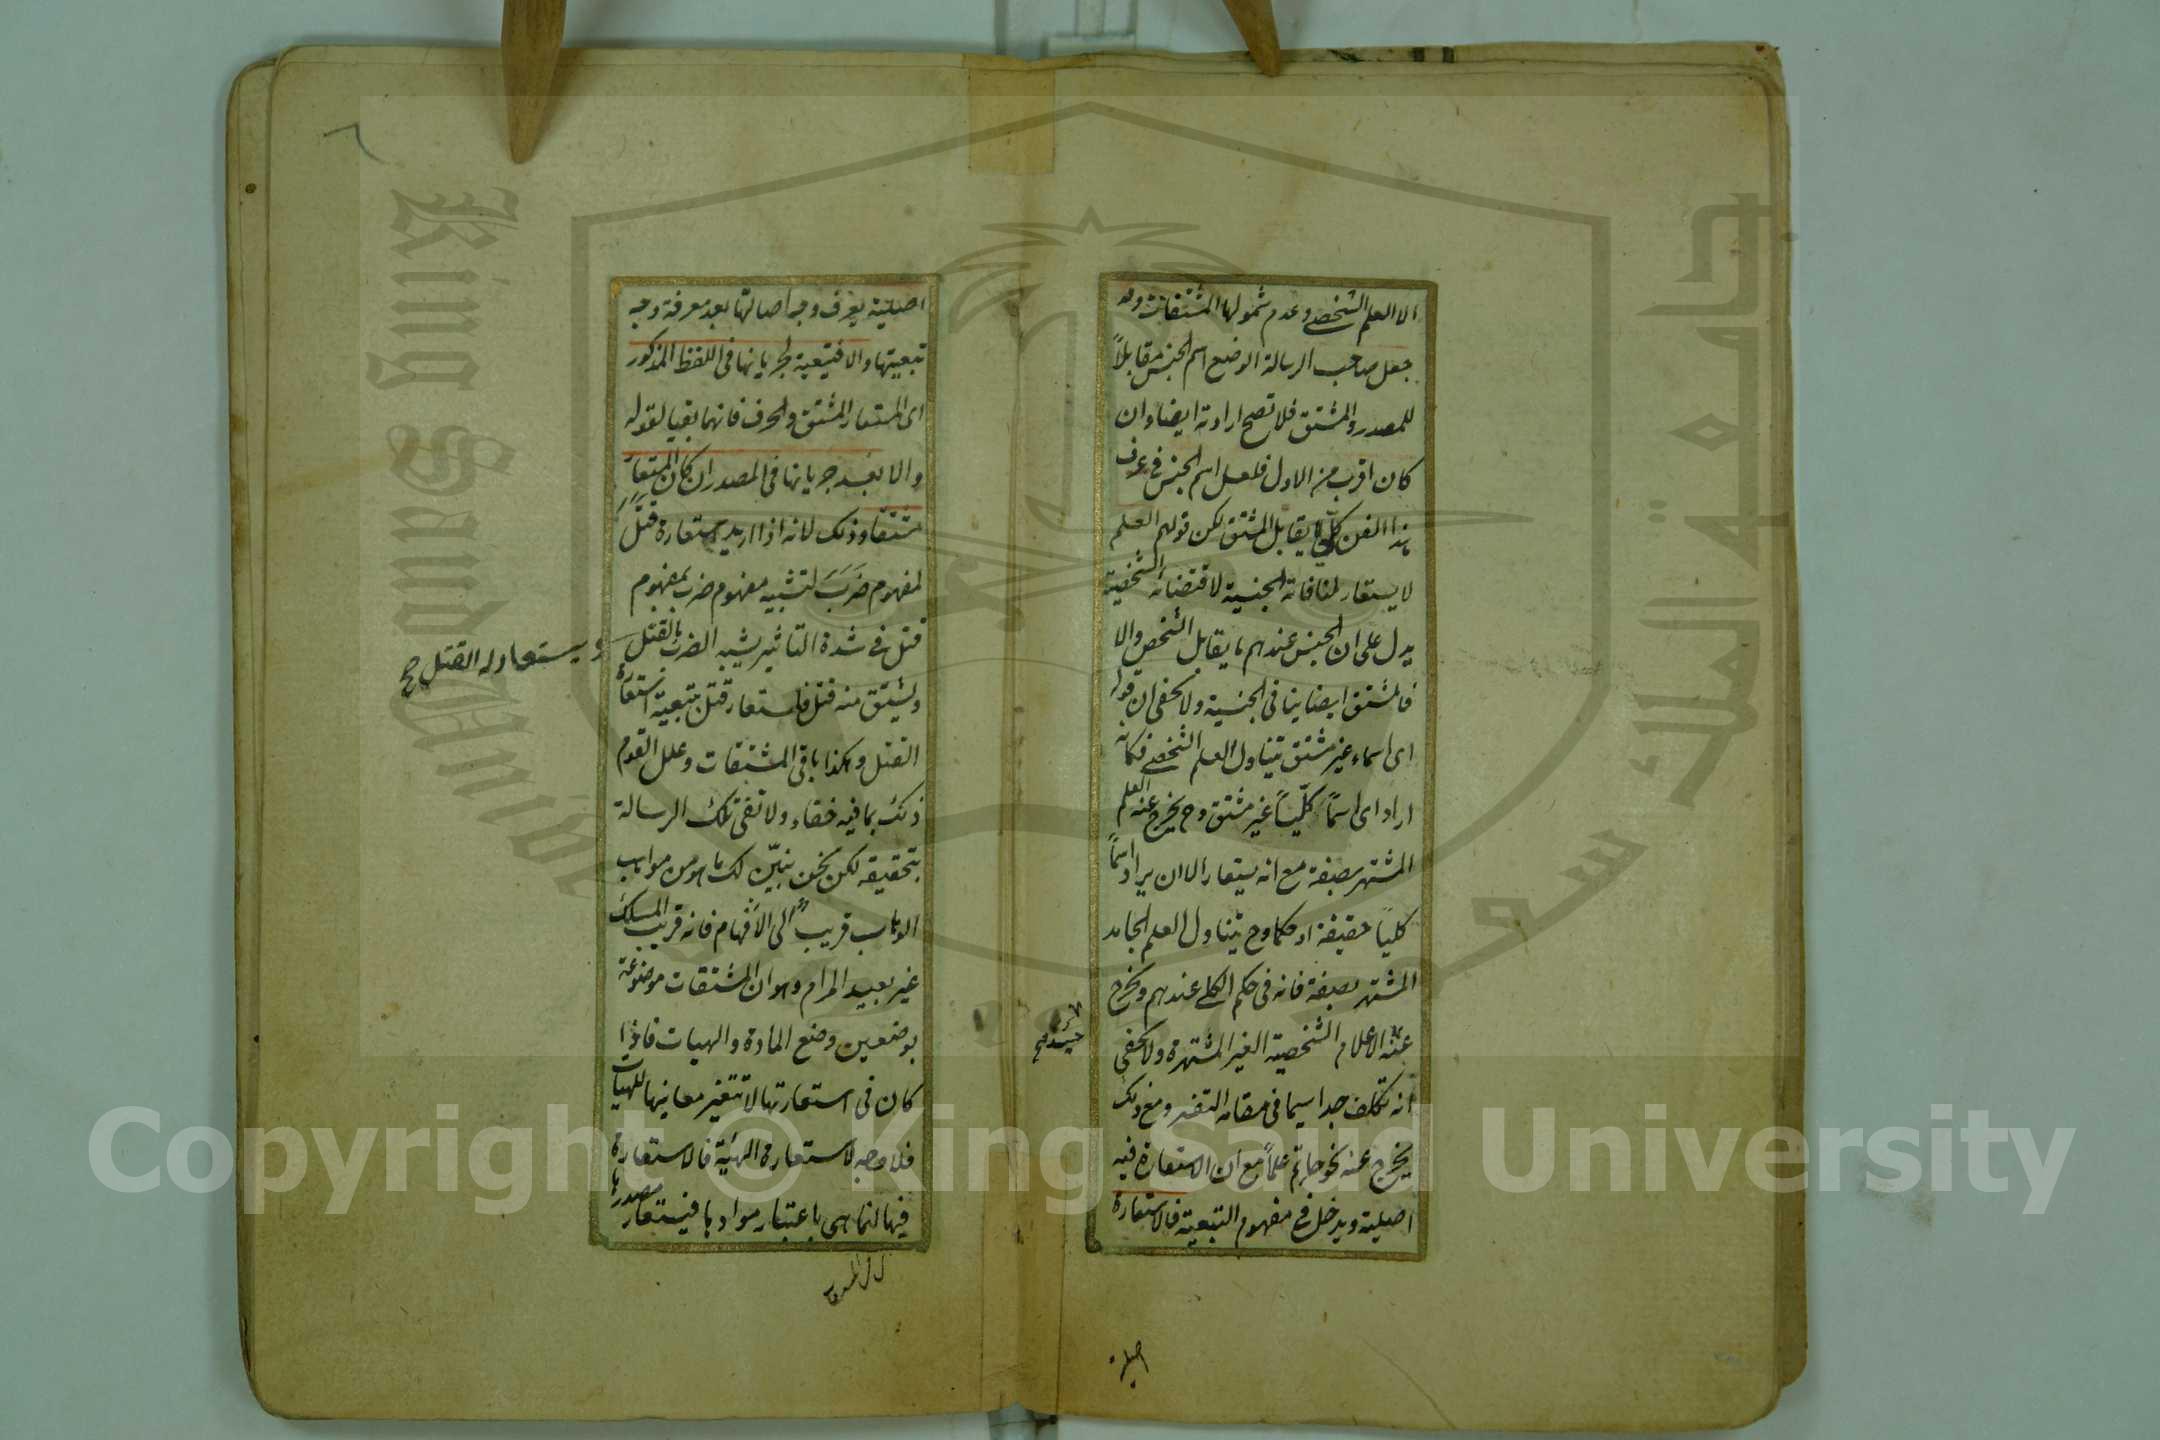 الا العلم الشخصي وعدم شمولها المشتقات وقد
جعل صاحب الرسالة الوضع اسم الجنس مقابلاً
للمصدر والمشتق فلا تصح ارادته ايضا وان
كان اقرب من الاول فلعل اسم الجنس في عرف
هذا الفن كلّي يقابل المشتق لكن قولهم العلم
لا يستعار لمنافاته الجنسية لاقتضائه الشخصية
يدل على ان الجنس عندهم ما يقابل الشخص والا
فالمشتق ايضا ينافي الجنسية ولا يخفى ان قوله
اى اسماء غير مشتق يتناول العلم الشخصي فكانه
اراد اى اسماً كلّيتاً غير مشتق وح يخرج عنه العلم
المشتهر بصفة مع انه يستعار الا ان يراد اسماً
كلياً حقيقة او حكما وح يتناول العلم الجامد
المشتهر بصفة فانه في حكم الكلي عندهم ويخرج
عنه الاعلام الشخصية الغير المشتهرة ولا يخفى
انه تكلف جدا سيما في مقام التفسير ومع ذلك
يخرج عنه نحو حاتم علماً مع ان الاستعارة فيه
اصلية ويدخل في مفهوم التبعية فالاستعارة
اصلية
اصلية يعرف وجه اصالتها بعد معرفة وجه
تبعيتها والا فتبعية لجريانها في اللفظ المذكور
اى المستعار المشتق والحرف فانهما بقيا لقوله
والا بعد جريانها في المصدر ان كان المستعار
مشتقا وذلك لانه اذا اريد استعارة قتل
لمفهوم ضَرَبَ لتشبيه مفهوم ضرب بمفهوم
قتل في شدة التاثير يشبه الضرب بالقتل
ويستعار له القتل صح
ويشتق منه قتل فاستعار قتل بتبعية استعارة
القتل وهكذا باقي المشتقات وعلل القوم
ذلك بما فيه خفاء ولا تفي تلك الرسالة
بتحقيقه لكن نحن نبيّن لك ما هو من مواهب
الوهاب قريب الى الافهام فانه قريب المسلك
غير بعيد المرام وهو ان المشتقات موضوعة
بوضعين وضع المادة والهيات فاذا
كان في استعارتها لا تتغير معانيها للهيات
فلا وجه لاستعارة الهيئة فالاستعارة
فيها انما هي باعتبار موادها فيستعار مصدرها